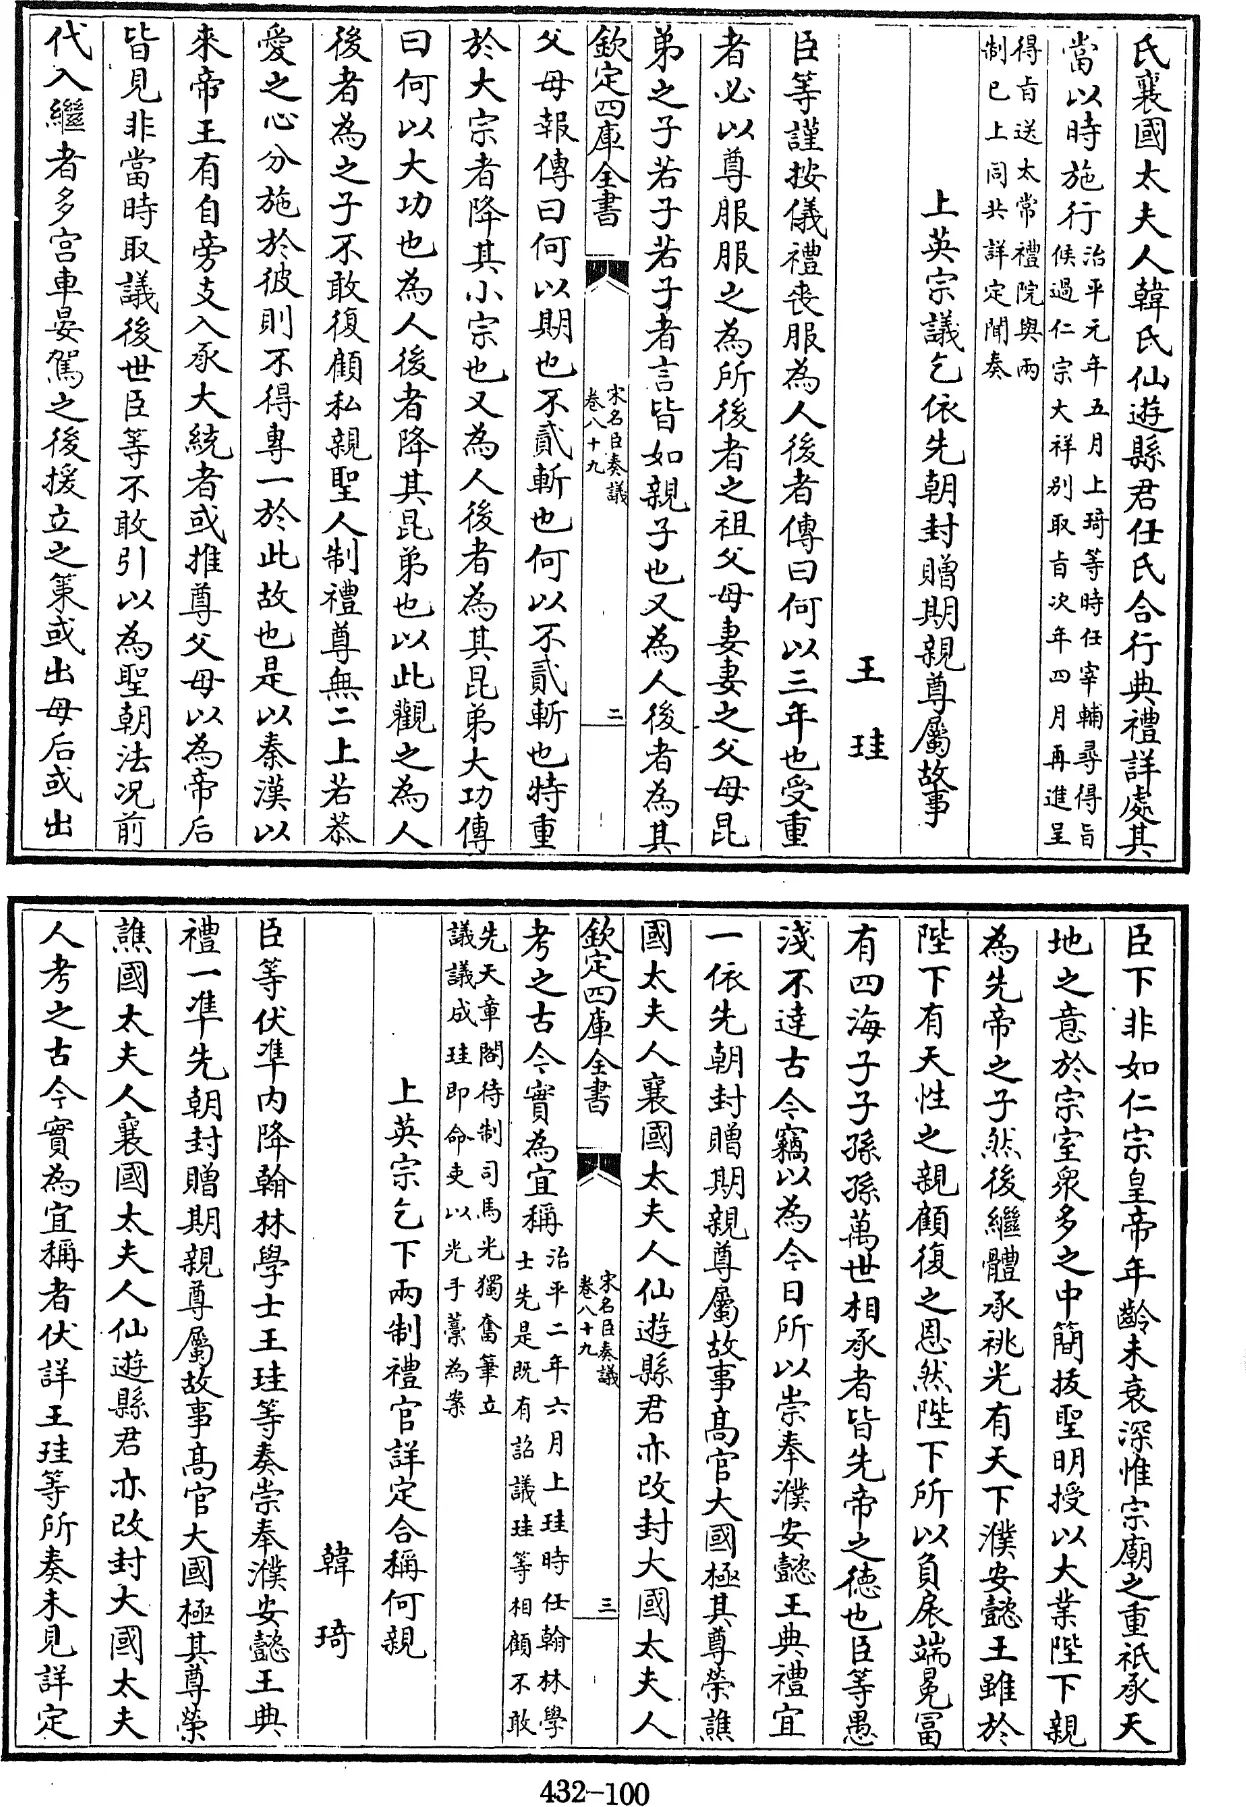 氏襄國太夫人韓氏仙遊縣君任氏合行典禮詳處其
當以時施行治平元年五月上琦等時任宰輔尋得旨
候過仁宗大祥別取旨次年四月再進呈
得旨送太常禮院與兩
制已上同共詳定聞奏
上英宗議乞依先朝封贈期親尊屬故事
王珪
臣等謹按儀禮喪服為人後者傳曰何以三年也受重
者必以尊服服之為所後者之祖父母妻妻之父母昆
弟之子若子若子者言皆如親子也又為人後者為其
欽定四庫全書
宋名臣奏議
卷八十九
二
父母報傳曰何以期也不貳斬也何以不貳斬也特重
於大宗者降其小宗也又為人後者為其昆弟大功傳
曰何以大功也為人後者降其昆弟也以此觀之為人
後者為之子不敢復顧私親聖人制禮尊無二上若恭
愛之心分施於彼則不得專一於此故也是以秦漢以
來帝王有自旁支入承大統者或推尊父母以為帝后
皆見非當時取議後世臣等不敢引以為聖朝法况前
代入繼者多宫車晏駕之後援立之策或出母后或出
臣下非如仁宗皇帝年齡未衰深惟宗廟之重祇承天
地之意於宗室衆多之中簡拔聖明授以大業陛下親
為先帝之子然後繼體承祧光有天下濮安懿王雖於
陛下有天性之親顧復之恩然陛下所以負扆端冕富
有四海子子孫孫萬世相承者皆先帝之徳也臣等愚
淺不達古今竊以為今日所以崇奉濮安懿王典禮宜
一依先朝封贈期親尊屬故事髙官大國極其尊榮譙
國太夫人襄國太夫人仙遊縣君亦改封大國太夫人
欽定四庫全書
宋名臣奏議
卷八十九
三
考之古今實為宜稱治平二年六月上珪時任翰林學
士先是既有詔議珪等相顧不敢
先天章閣待制司馬光獨奮筆立
議議成珪即命吏以光手藁為案
上英宗乞下兩制禮官詳定合稱何親
韓琦
臣等伏準内降翰林學士王珪等奏崇奉濮安懿王典
禮一準先朝封贈期親尊屬故事髙官大國極其尊榮
譙國太夫人襄國太夫人仙遊縣君亦改封大國太夫
人考之古今實為宜稱者伏詳王珪等所奏未見詳定
432-100